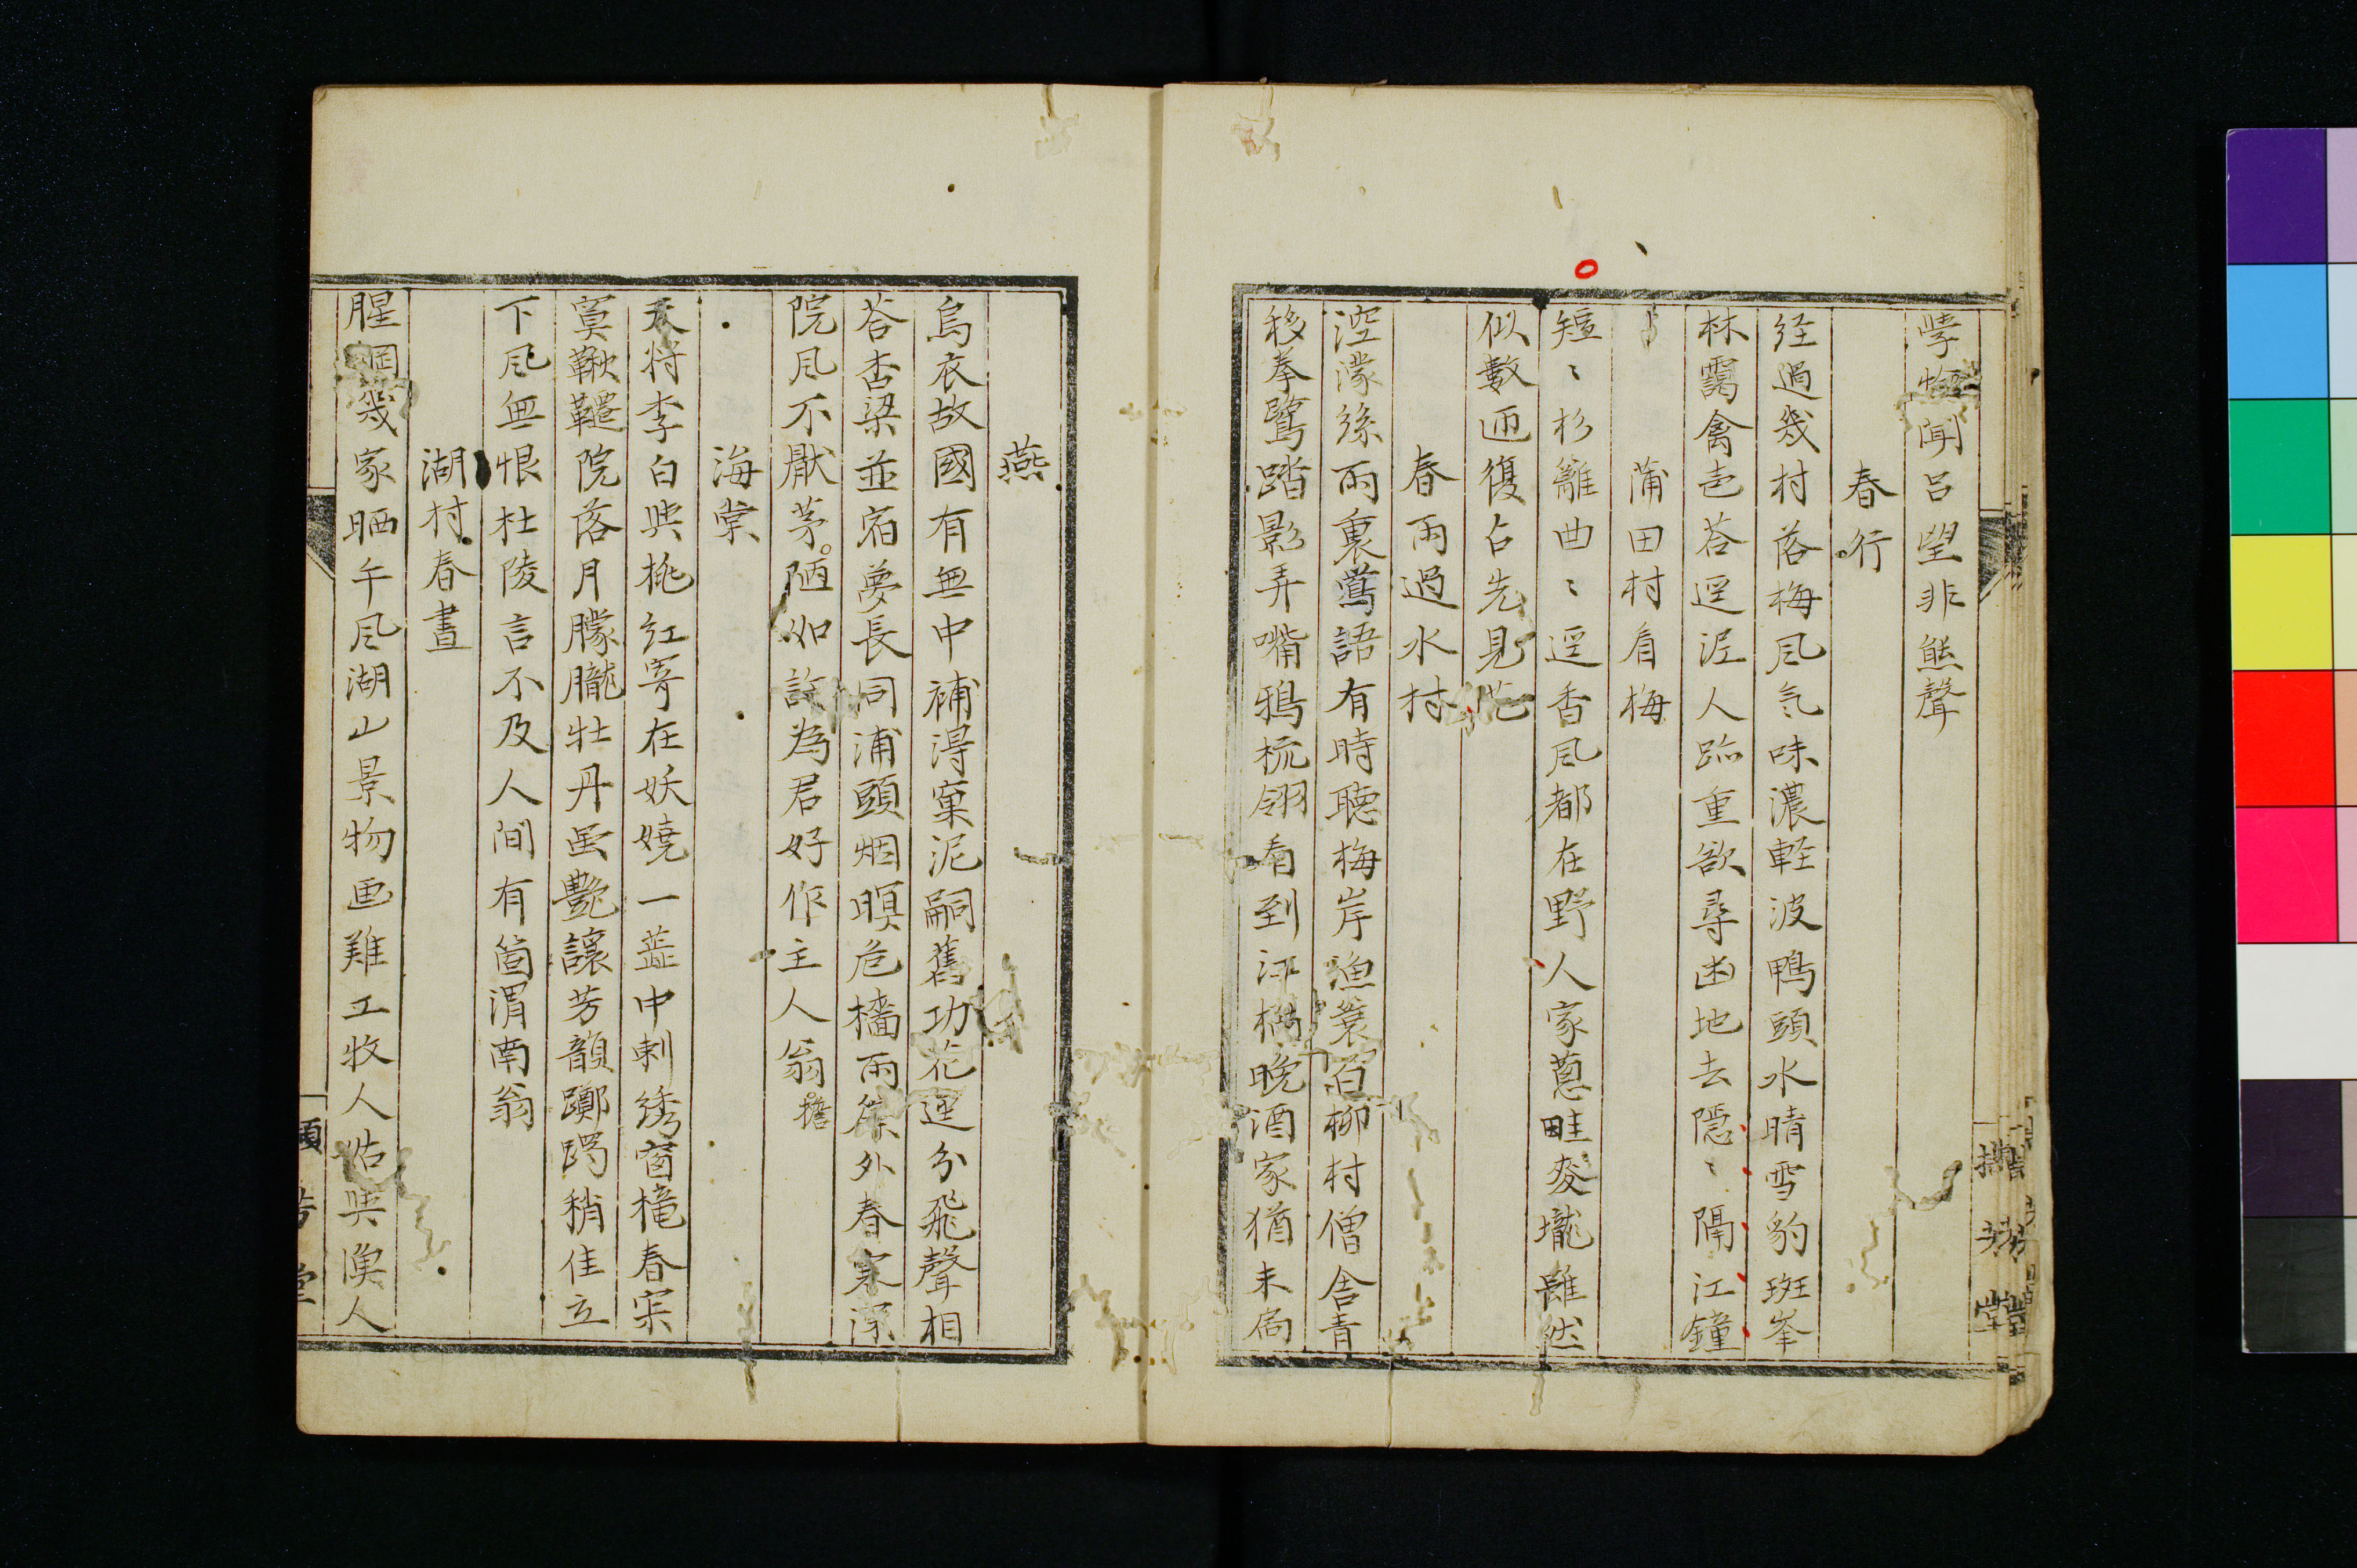 孛 聞呂望非熊聲
春行
経過幾村落梅風気味濃軽波鴨頭水晴雪豹斑峯
林靄禽邑苔逕泥人跡重欲尋幽地去隠〻隔江鐘
蒲田村看梅
短〻杉籬曲〻逕香風都在野人家蔥畦麥壠雖然
似數匝復占先見花
春雨過水村
涳濛絲雨裏鶯語有時聴梅岸漁簑白柳村僧舎青
移拳鷺踏影弄嘴鴉梳翎看到江橋晩酒家猶未扃
燕
烏衣故國有無中補得窠泥嗣舊功花逕分飛聲相
答杏梁並宿夢長同浦頭烟暝危檣雨簾外春寒深
院風不厭茅陋如許為君好作主人翁 檐
海棠
天将李白與桃紅寄在妖嬈一蕋中刺綉窗櫳春寂
寞鞦韆院落月朦朧牡丹虽艷讓芳韻躑躅稍佳立
下風無恨杜陵言不及人間有箇渭南翁
湖村春晝
腥網幾家晒午風湖山景物画難工牧人估與漁人
擷芳堂
擷芳堂